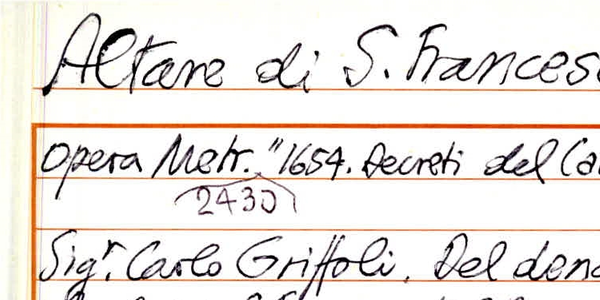 Altare di S. Frances
Opera Metr. "1654. Decreti del Ca
2430
Sigr. Carlo Griffoli. Del dena